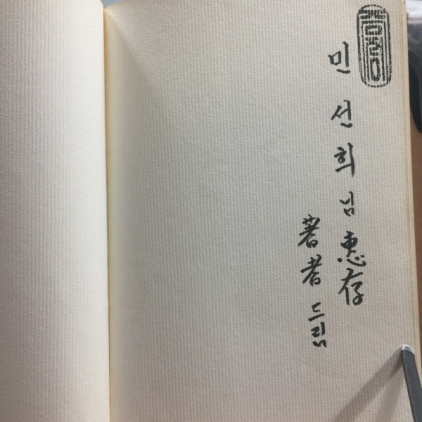 민 선 희 님 惠存
著者 드림